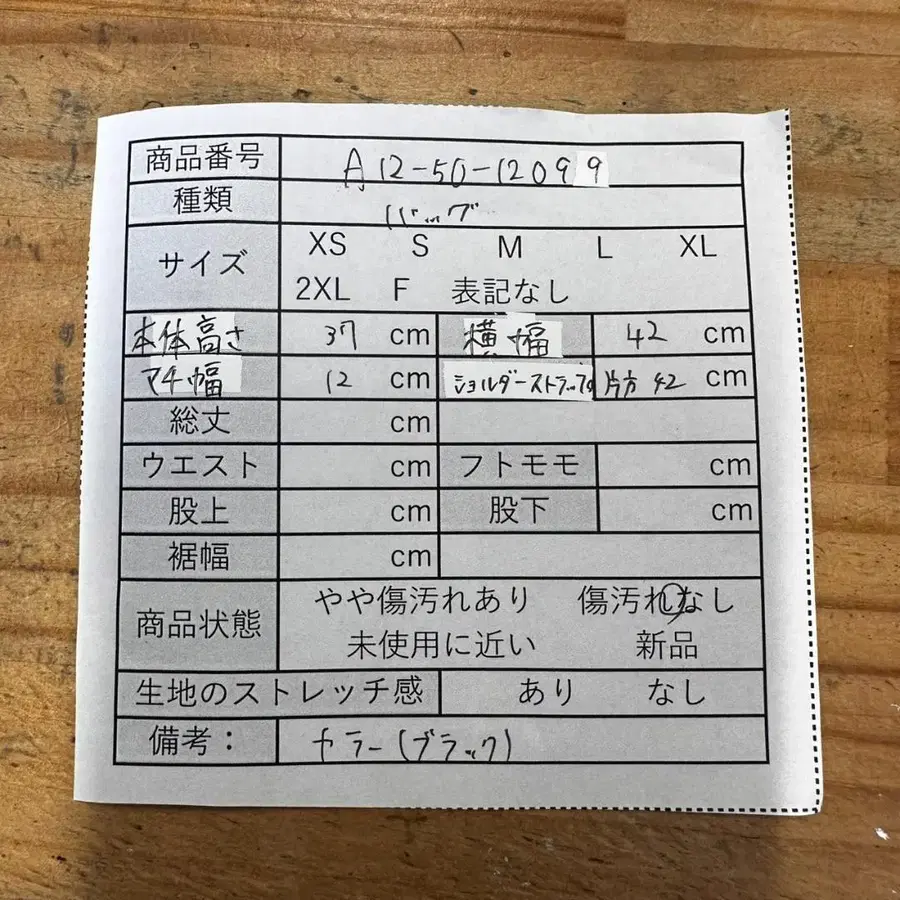 商品番号 A12-50-12099
種類 バッグ
サイズ XS S M L XL
2XL F 表記なし
本体高さ 37 cm 横幅 42 cm
マチ幅 12 cm ショルダーストラップ 片方 42 cm
総丈 cm
ウエスト cm フトモモ cm
股上 cm 股下 cm
裾幅 cm
商品状態 やや傷汚れあり 傷汚れなし
未使用に近い 新品
生地のストレッチ感 あり なし
備考: カラー(ブラック)